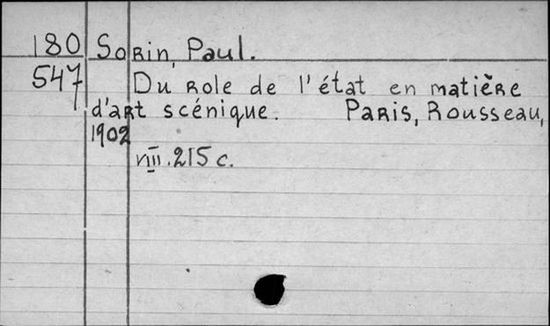 180 Sorin, Paul.
547 Du role de l'état en matière
d'art scénique. Paris, Rousseau,
1902
VIII.215 c.